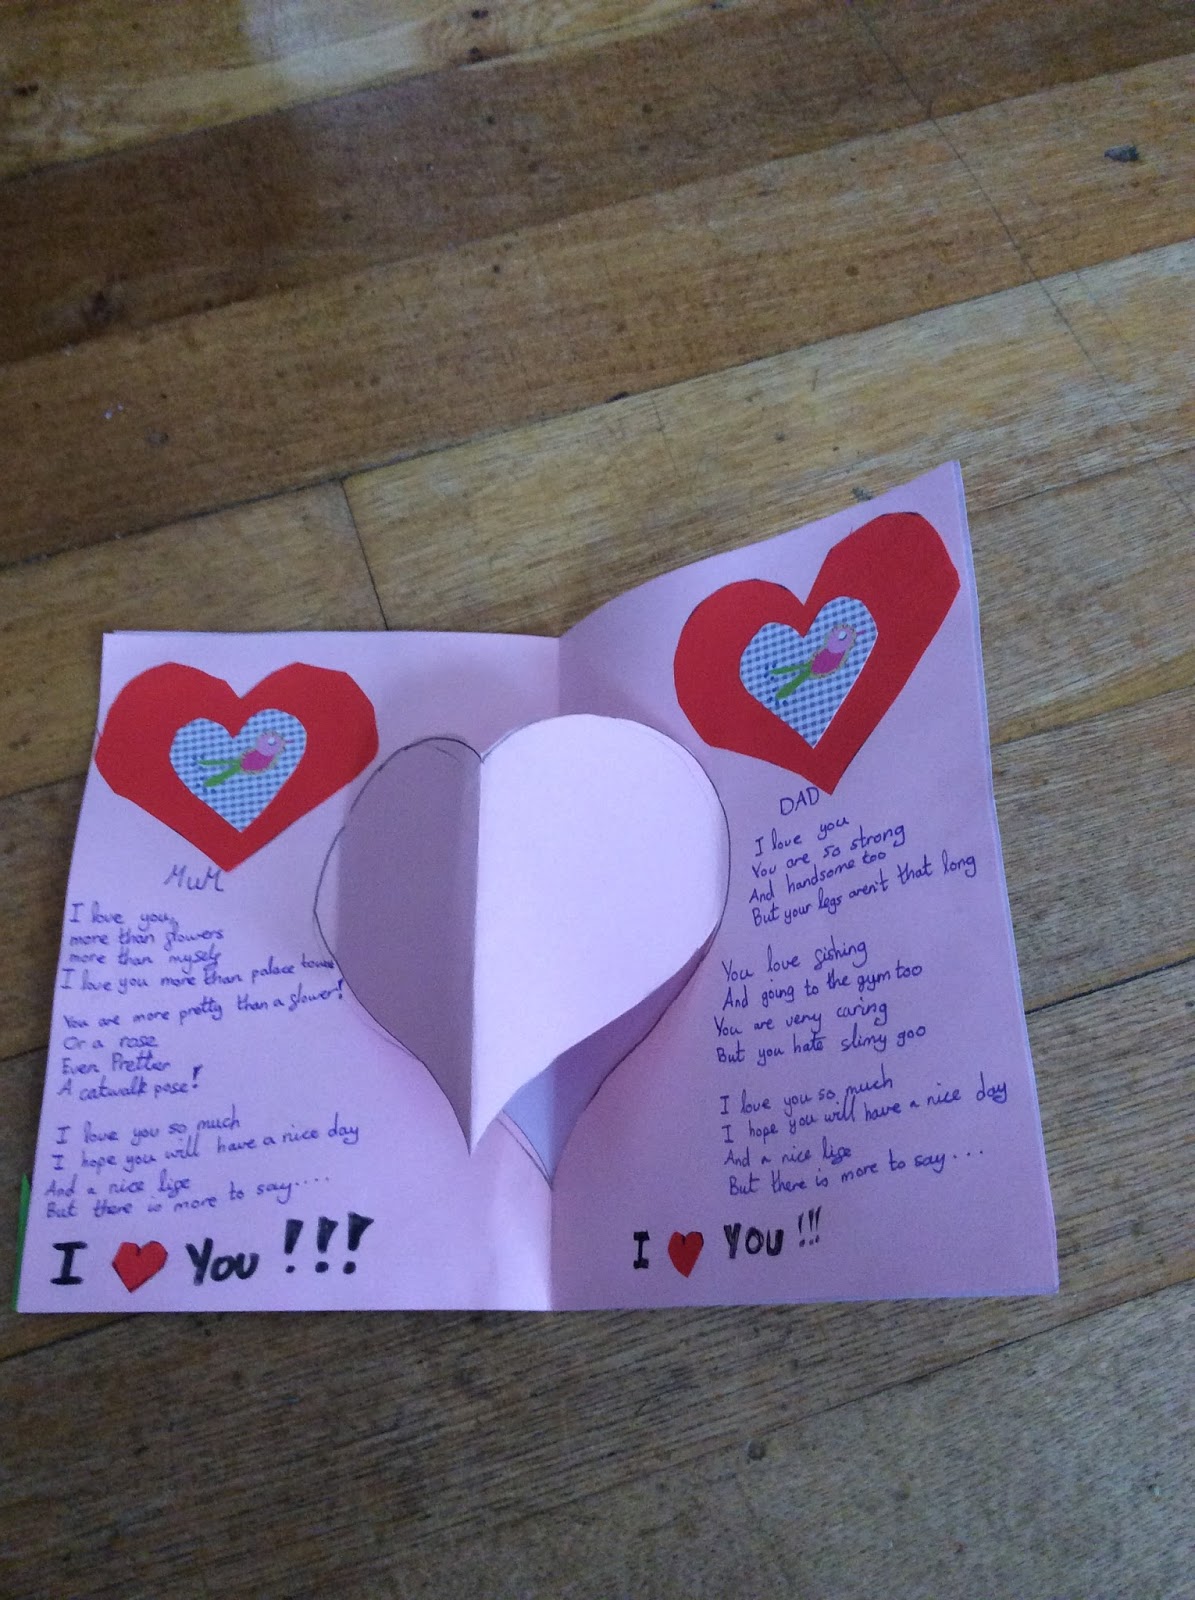 MUM
I love you,
more than flowers
more than myself
I love you more than palace
You are more pretty than a flower!
Or a rose
Even Prettier
A catwalk pose!
I love you so much
I hope you will have a nice day
And a nice life
But there is more to say....
I ♥ You !!!
DAD
I love you
You are so strong
And handsome too
But your legs aren't that long
You love fishing
And going to the gym too
You are very caring
But you hate slimy goo
I love you so much
I hope you will have a nice day
And a nice life
But there is more to say...
I ♥ YOU !!!